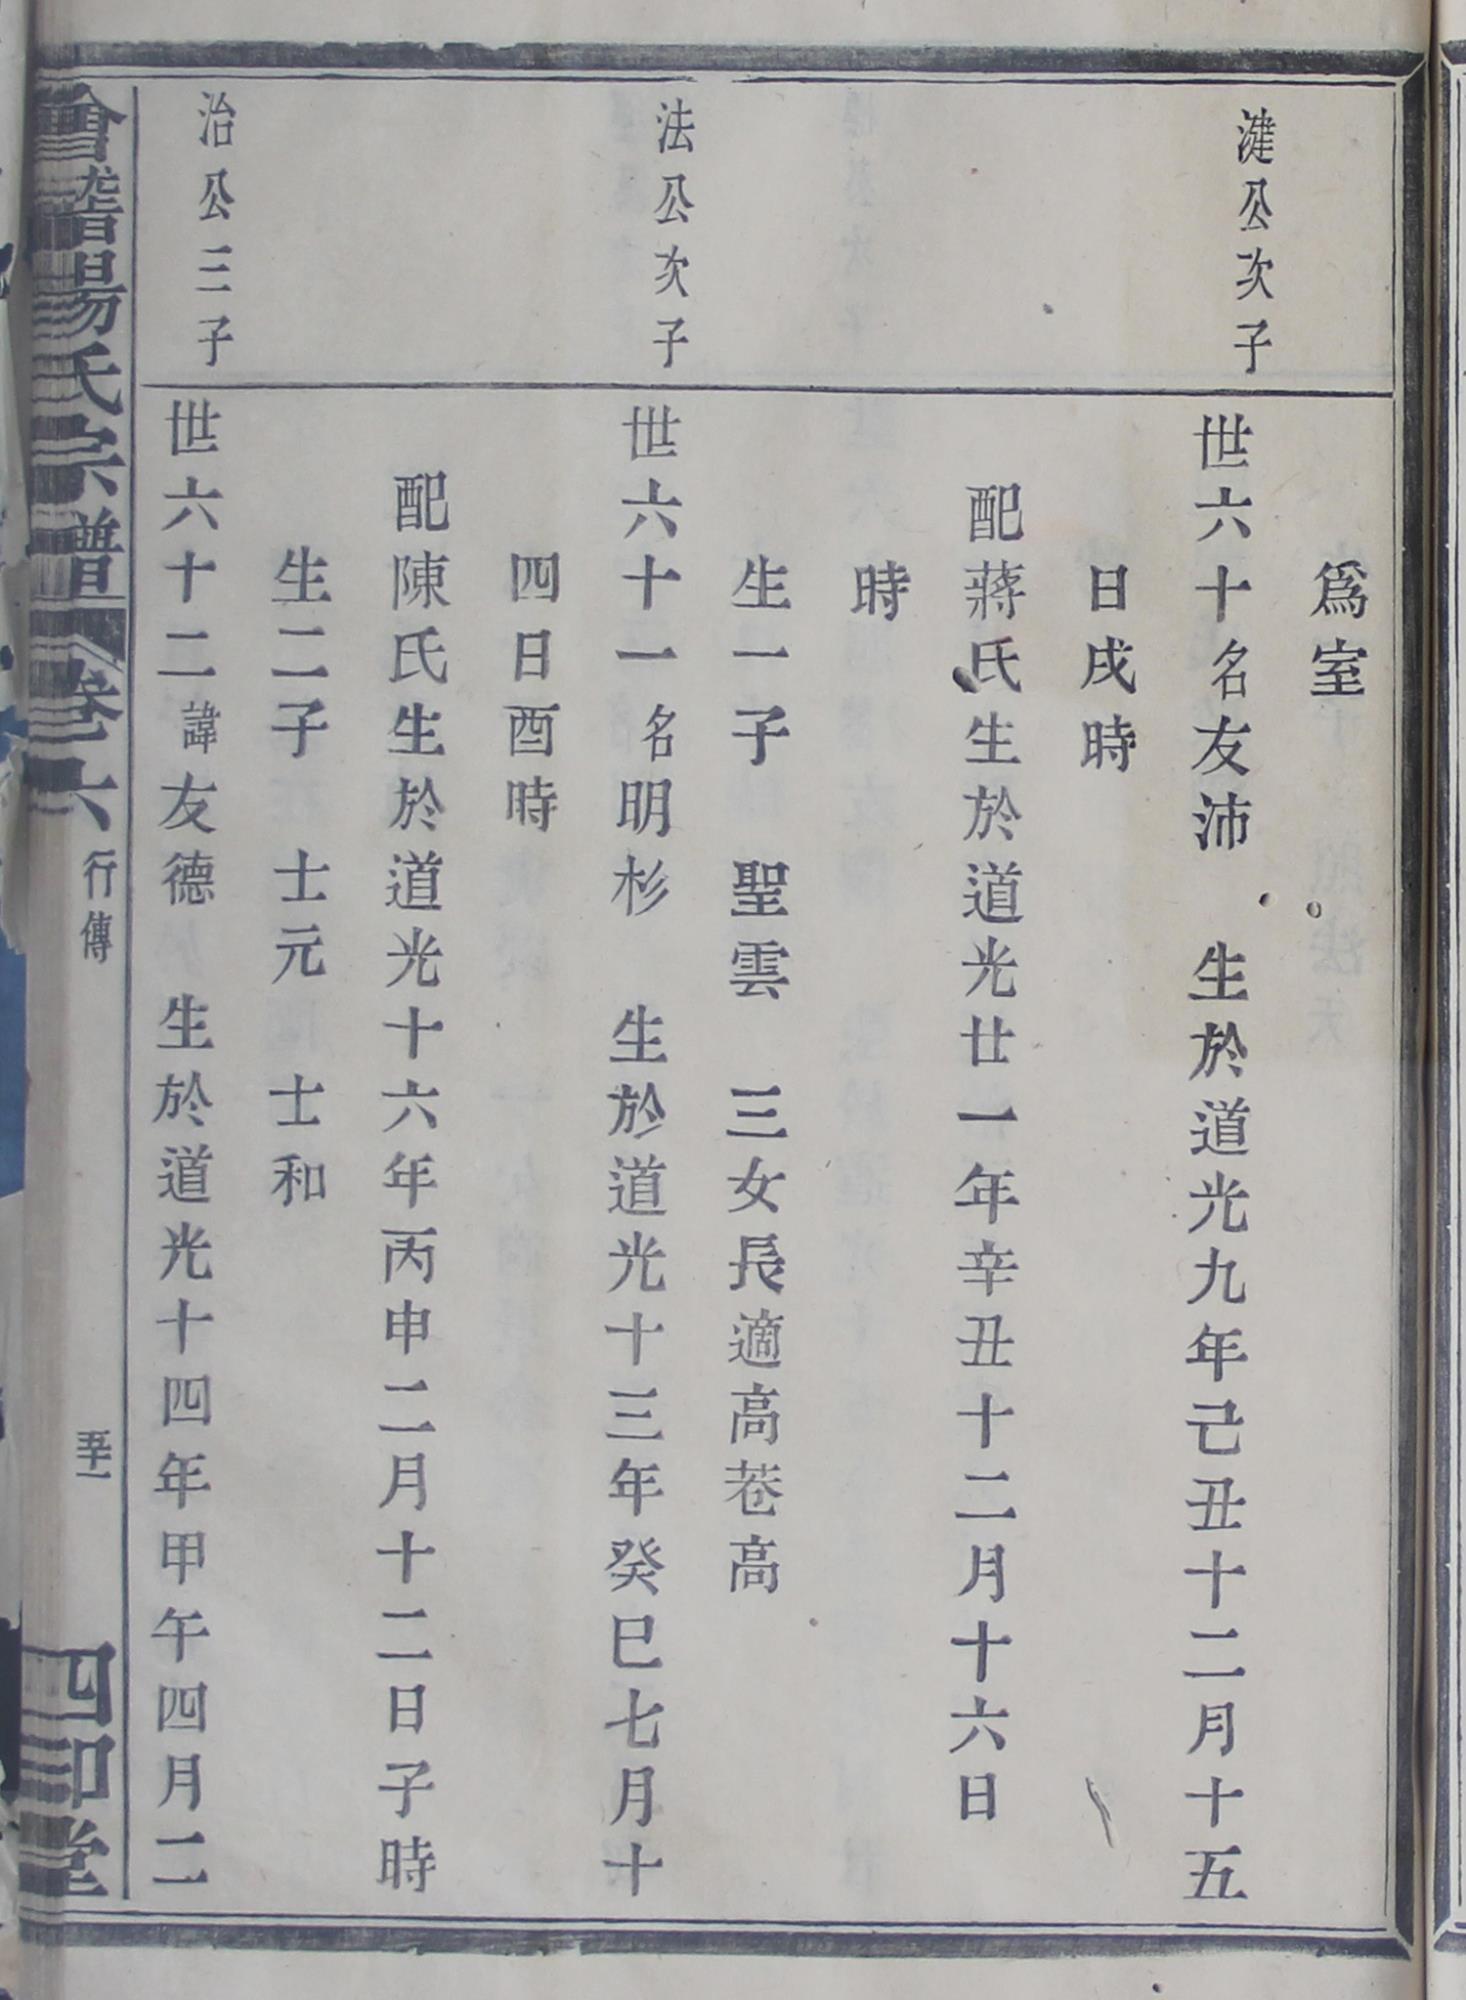 爲室
湕公次子
世六十名友沛　生於道光九年己丑十二月十五
日戌時
配蔣氏生於道光廿一年辛丑十二月十六日
時
生一子　聖雲　三女長適高巷高
法公次子
世六十一名明杉　生於道光十三年癸巳七月十
四日酉時
配陳氏生於道光十六年丙申二月十二日子時
生二子　士元　士和
治公三子
世六十二諱友德　生於道光十四年甲午四月二
會稽楊氏宗譜　卷六　行傳　五十一　四印堂